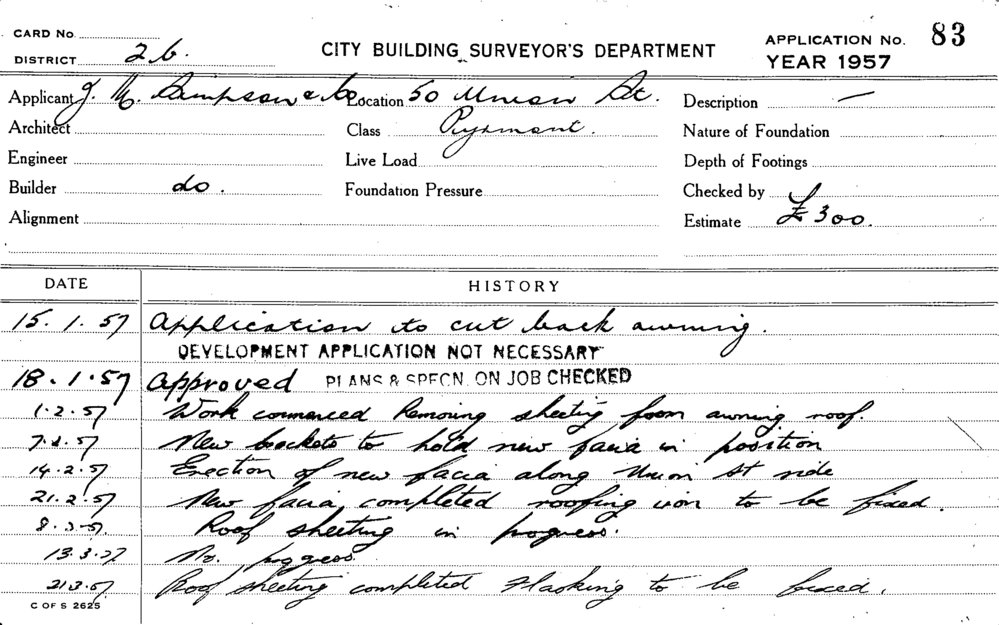 CARD No.
DISTRICT 26.
CITY BUILDING SURVEYOR'S DEPARTMENT
APPLICATION No. 83
YEAR 1957
Applicant J. M. Sampson & Co Location 50 Union St. Description —
Architect Class Pyrmont. Nature of Foundation
Engineer Live Load Depth of Footings
Builder do. Foundation Pressure Checked by
Alignment Estimate £300.
DATE HISTORY
15.1.57 Application to cut back awning.
DEVELOPMENT APPLICATION NOT NECESSARY
18.1.57 Approved PLANS & SPECN. ON JOB CHECKED
1.2.57 Work commenced Removing sheeting from awning roof.
7.2.57 New brackets to hold new facia in position
14.2.57 Erection of new facia along Union St side
21.2.57 New facia completed roofing iron to be fixed.
8.3.57. Roof sheeting in progress.
13.3.57 No. progress.
21.3.57 Roof sheeting completed Flashing to be fixed.
C OF S 2625